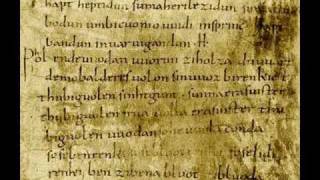 hapt heptidun sumaherilezidun sumaclu
bodun umbicuonio uuidi insprinc hapt
bandun inuar uigandun · H ·
Phol endeuuodan uuorun ziholza du uuart
demobalderes uolon sin uuoz birenkict
thubiguolen sinhtgunt · sunna era suister
thubiguolen friia uolla era suister thu
biguolen uuodan conda
sosebenrenki soselidi
renki ben zibena bluot zibluoda